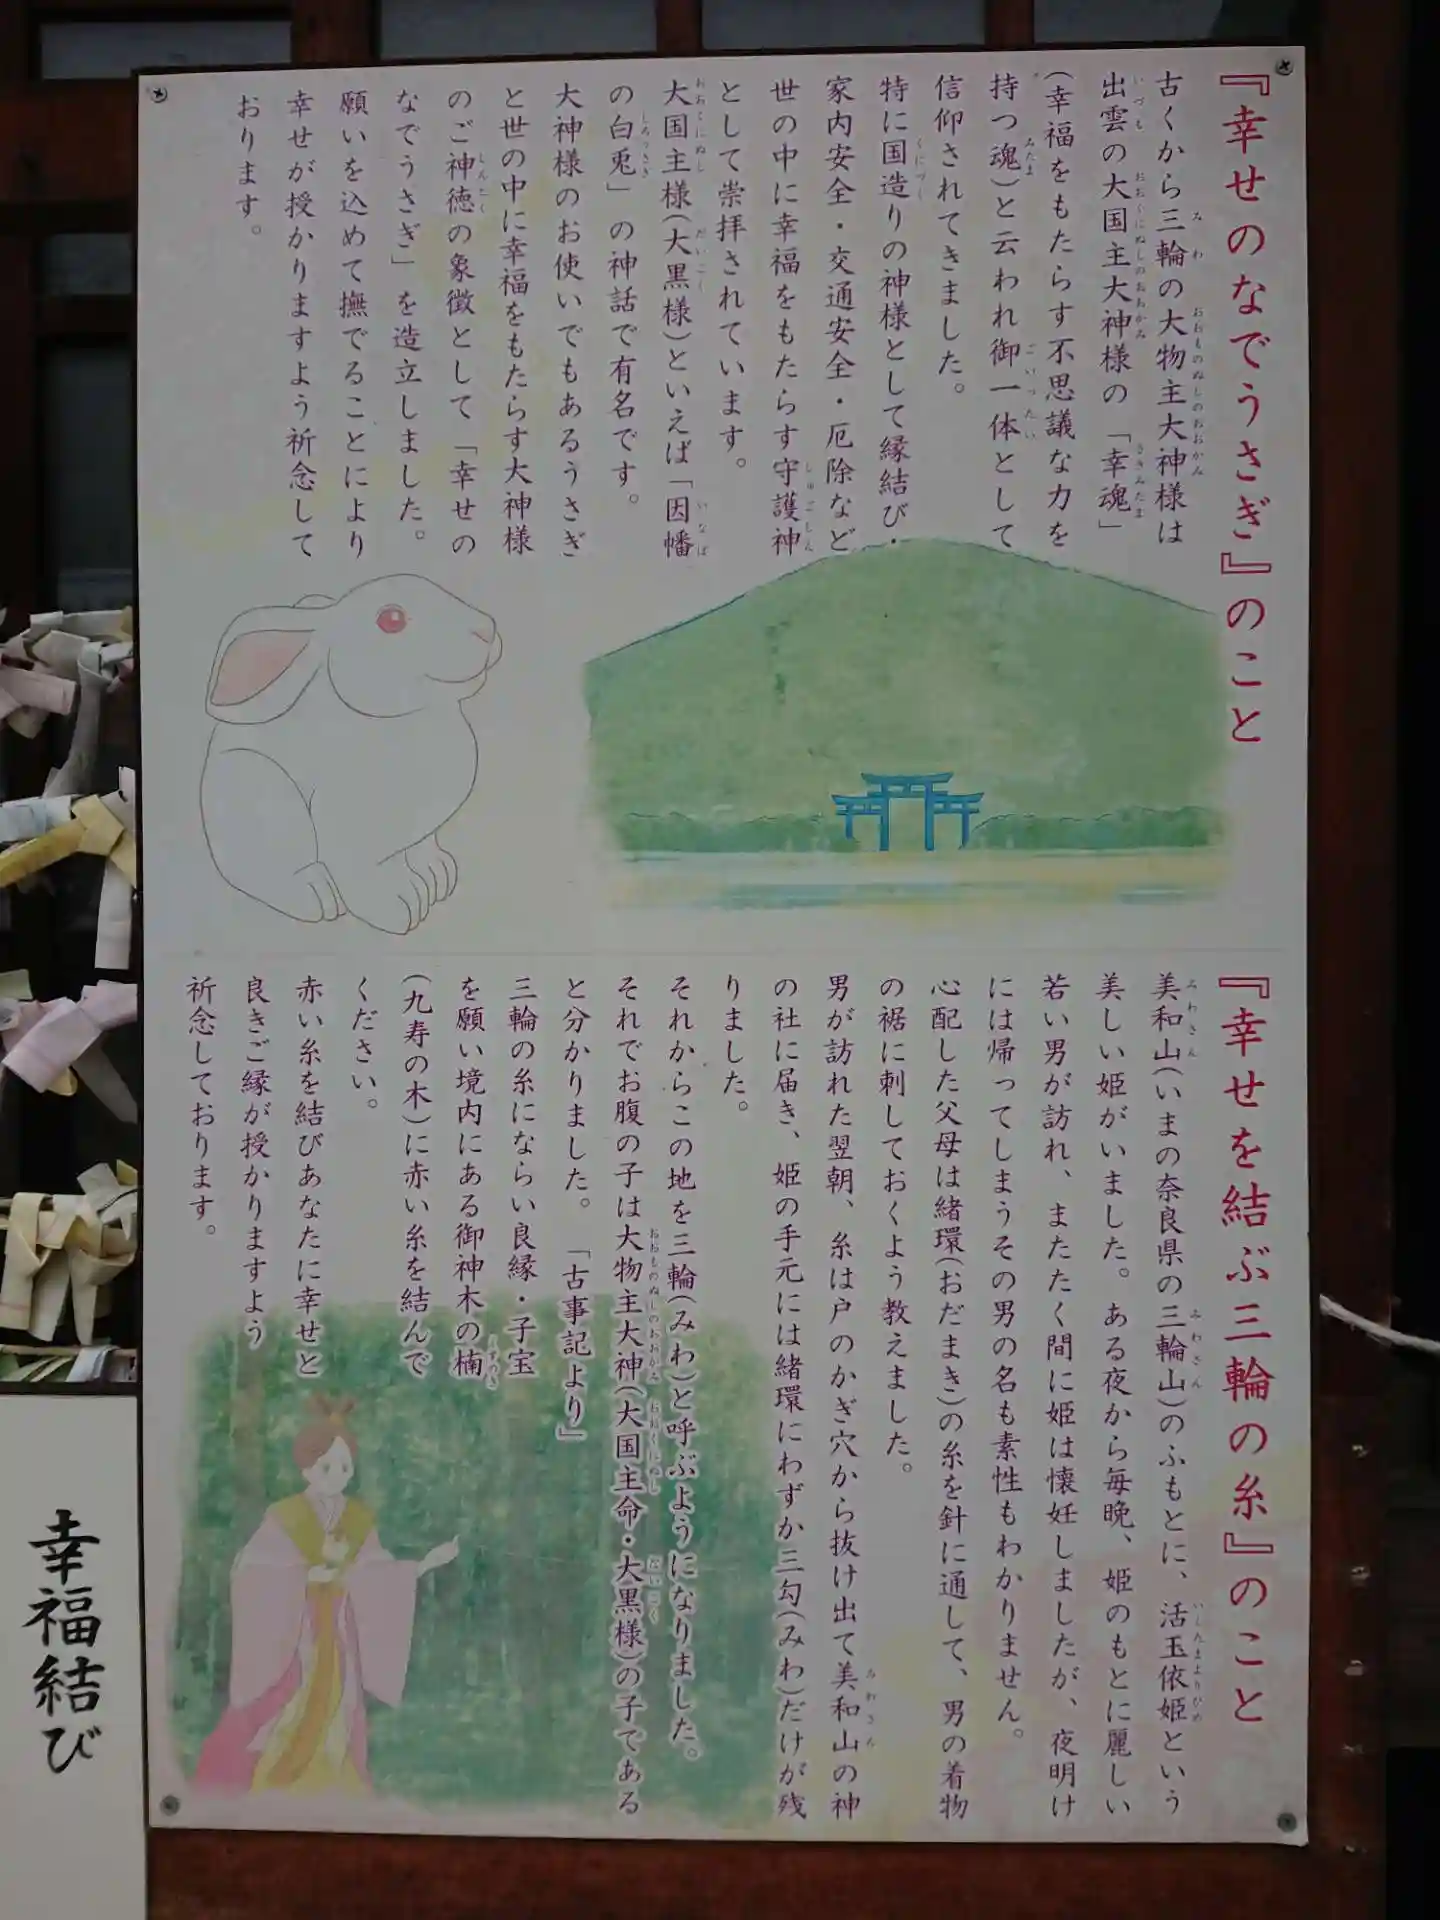 『幸せのなでうさぎ』のこと
古くから三輪の大物主大神様は
出雲の大国主大神様の「幸魂」
(幸福をもたらす不思議な力を
持つ魂)と云われ御一体として
信仰されてきました。
特に国造りの神様として縁結び・
家内安全・交通安全・厄除など
世の中に幸福をもたらす守護神
として崇拝されています。
大国主様(大黒様)といえば「因幡
の白兎」の神話で有名です。
大神様のお使いでもあるうさぎ
と世の中に幸福をもたらす大神様
のご神徳の象徴として「幸せの
なでうさぎ」を造立しました。
願いを込めて撫でることにより
幸せが授かりますよう祈念して
おります。
『幸せを結ぶ三輪の糸』のこと
美和山(いまの奈良県の三輪山)のふもとに、活玉依姫という
美しい姫がいました。ある夜から毎晩、姫のもとに麗しい
若い男が訪れ、またたく間に姫は懐妊しましたが、夜明け
には帰ってしまうその男の名も素性もわかりません。
心配した父母は緒環(おだまき)の糸を針に通して、男の着物
の裾に刺しておくよう教えました。
男が訪れた翌朝、糸は戸のかぎ穴から抜け出て美和山の神
の社に届き、姫の手元には緒環にわずか三勾(みわ)だけが残
りました。
それからこの地を三輪(みわ)と呼ぶようになりました。
それでお腹の子は大物主大神(大国主命・大黒様)の子である
と分かりました。「古事記より」
三輪の糸にならい良縁・子宝
を願い境内にある御神木の楠
(九寿の木)に赤い糸を結んで
ください。
赤い糸を結びあなたに幸せと
良きご縁が授かりますよう
祈念しております。
幸福結び